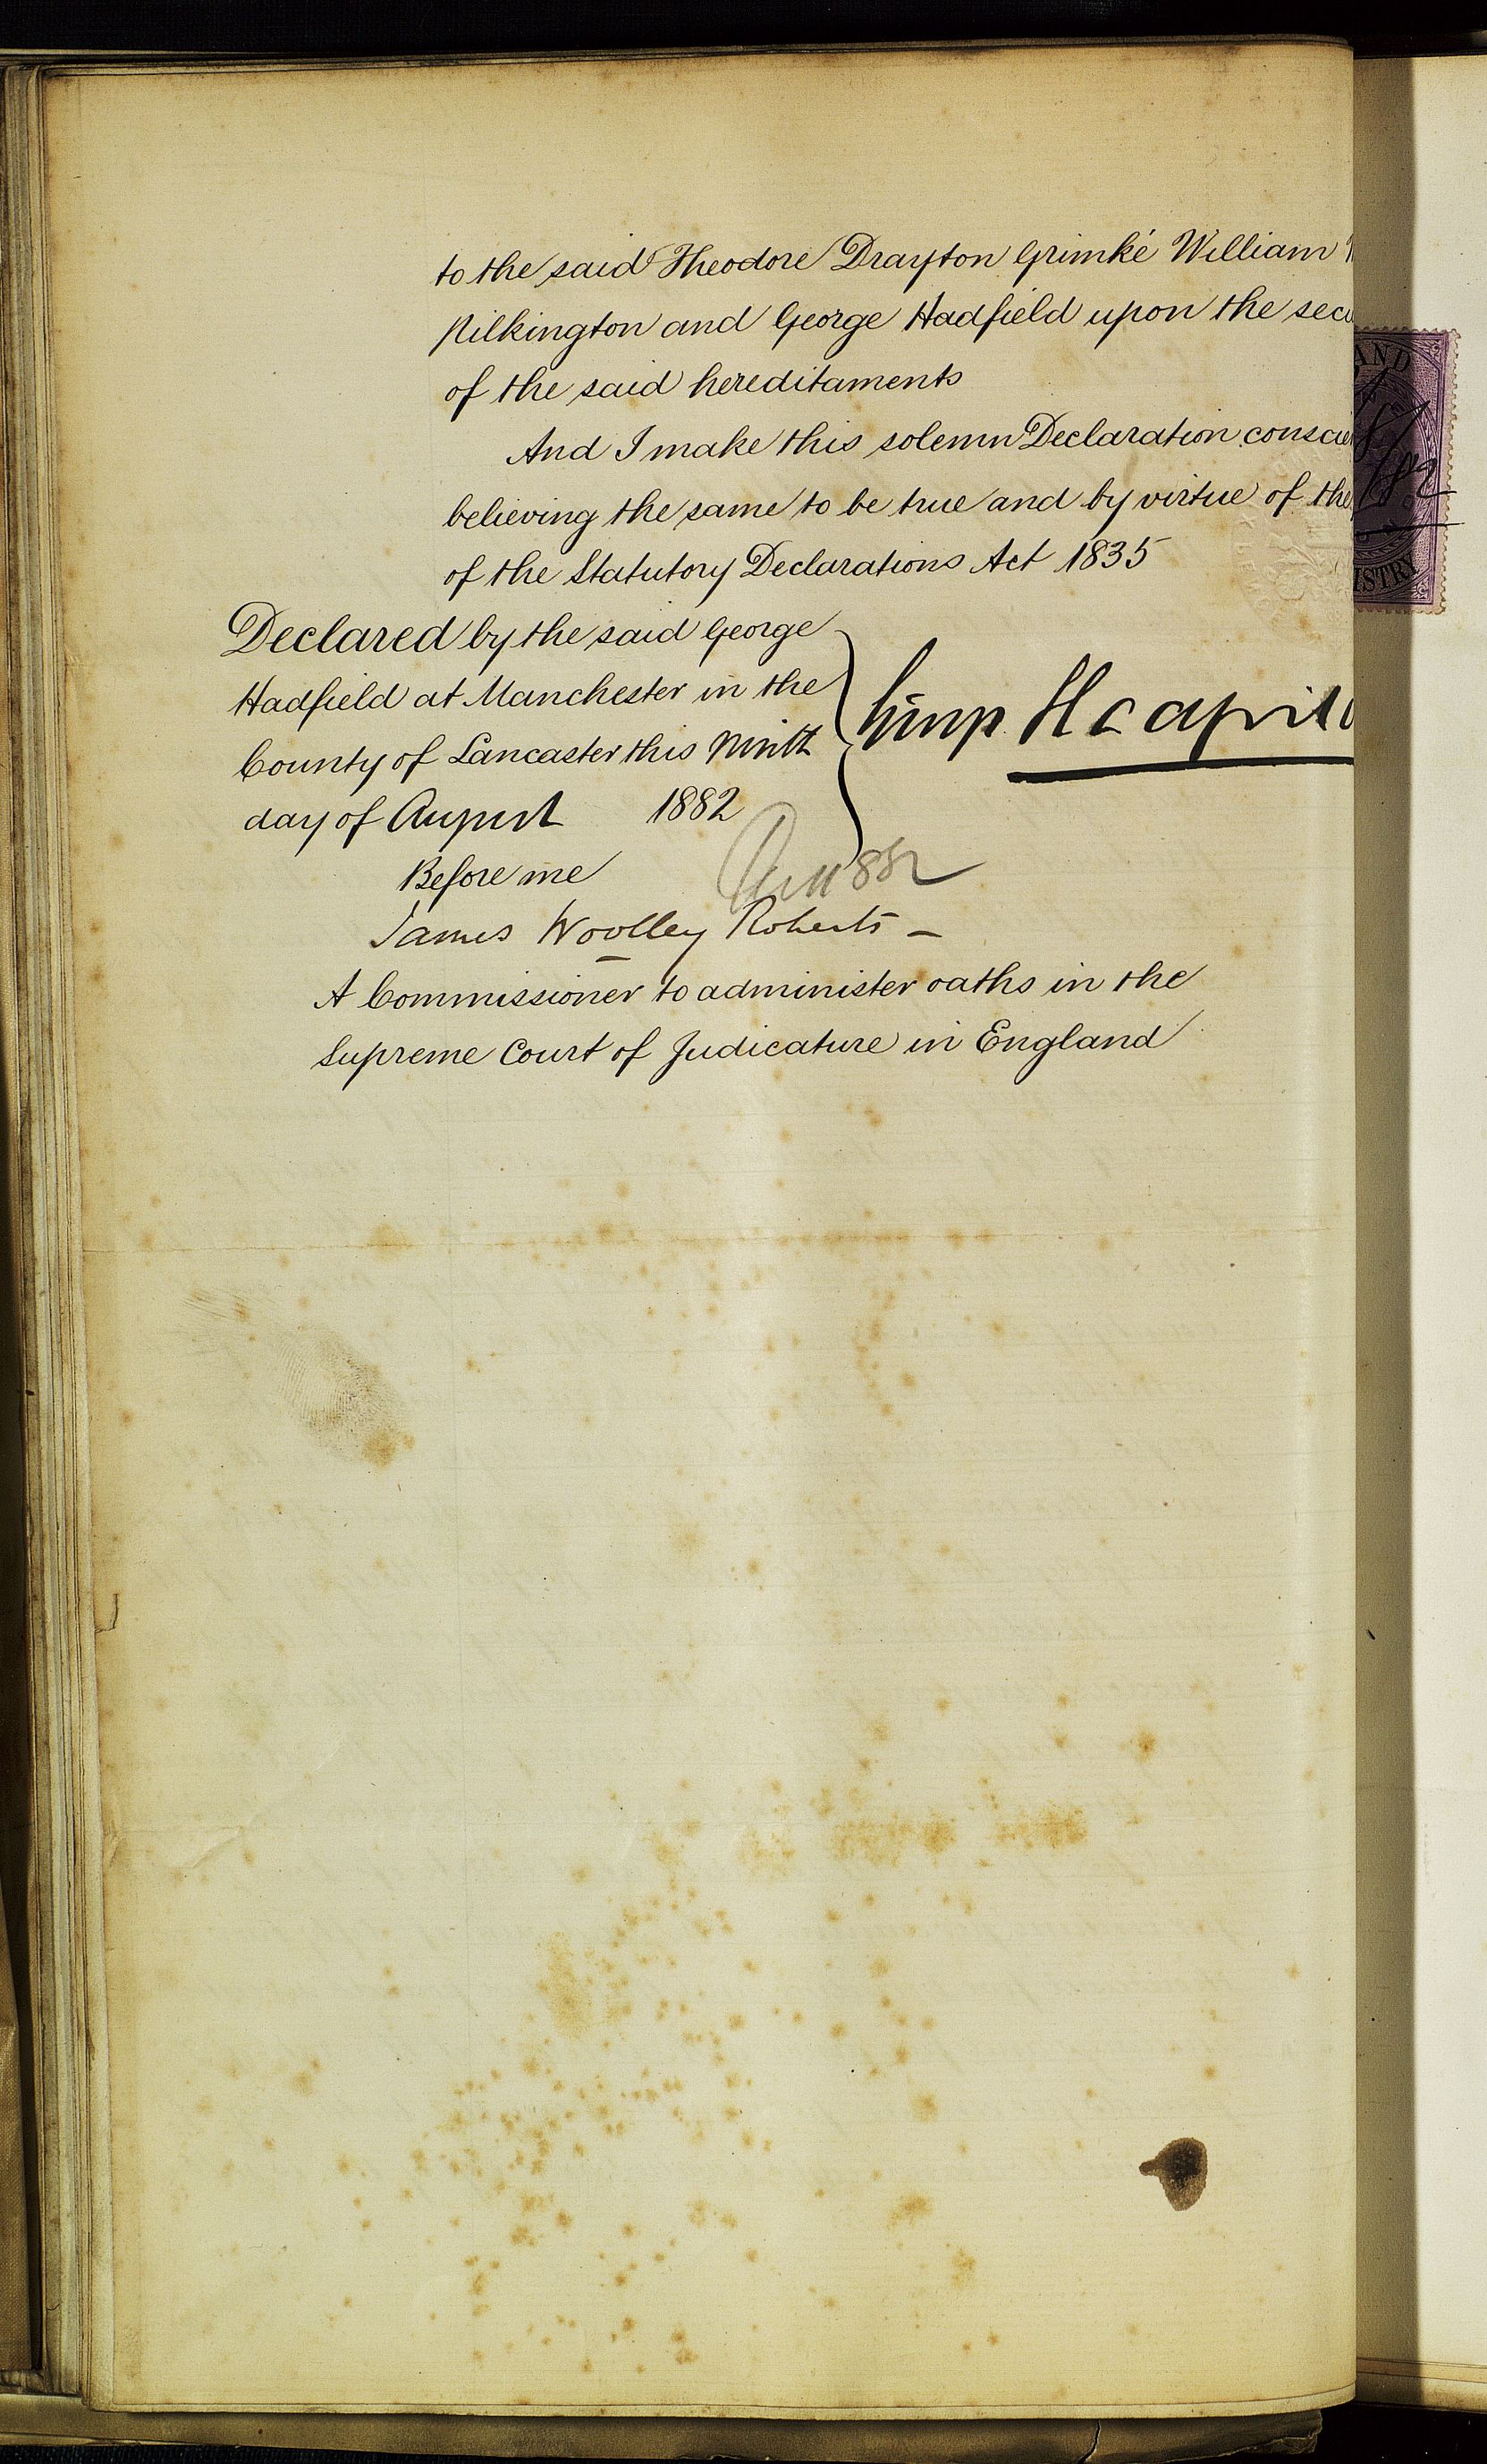 to the said Theodore Drayton Grimké William
Pilkington and George Hadfield upon the secu
of the said hereditaments
And I make this solemn Declaration conscie
believing the same to be true and by virtue of the
of the Statutory Declarations Act 1835
Declared by the said George
Hadfield at Manchester in the
County of Lancaster this Ninth
day of August 1882
Before me
James Woolley Roberts
A Commissioner to administer oaths in the
Supreme Court of Judicature in England
AND
ISTRY